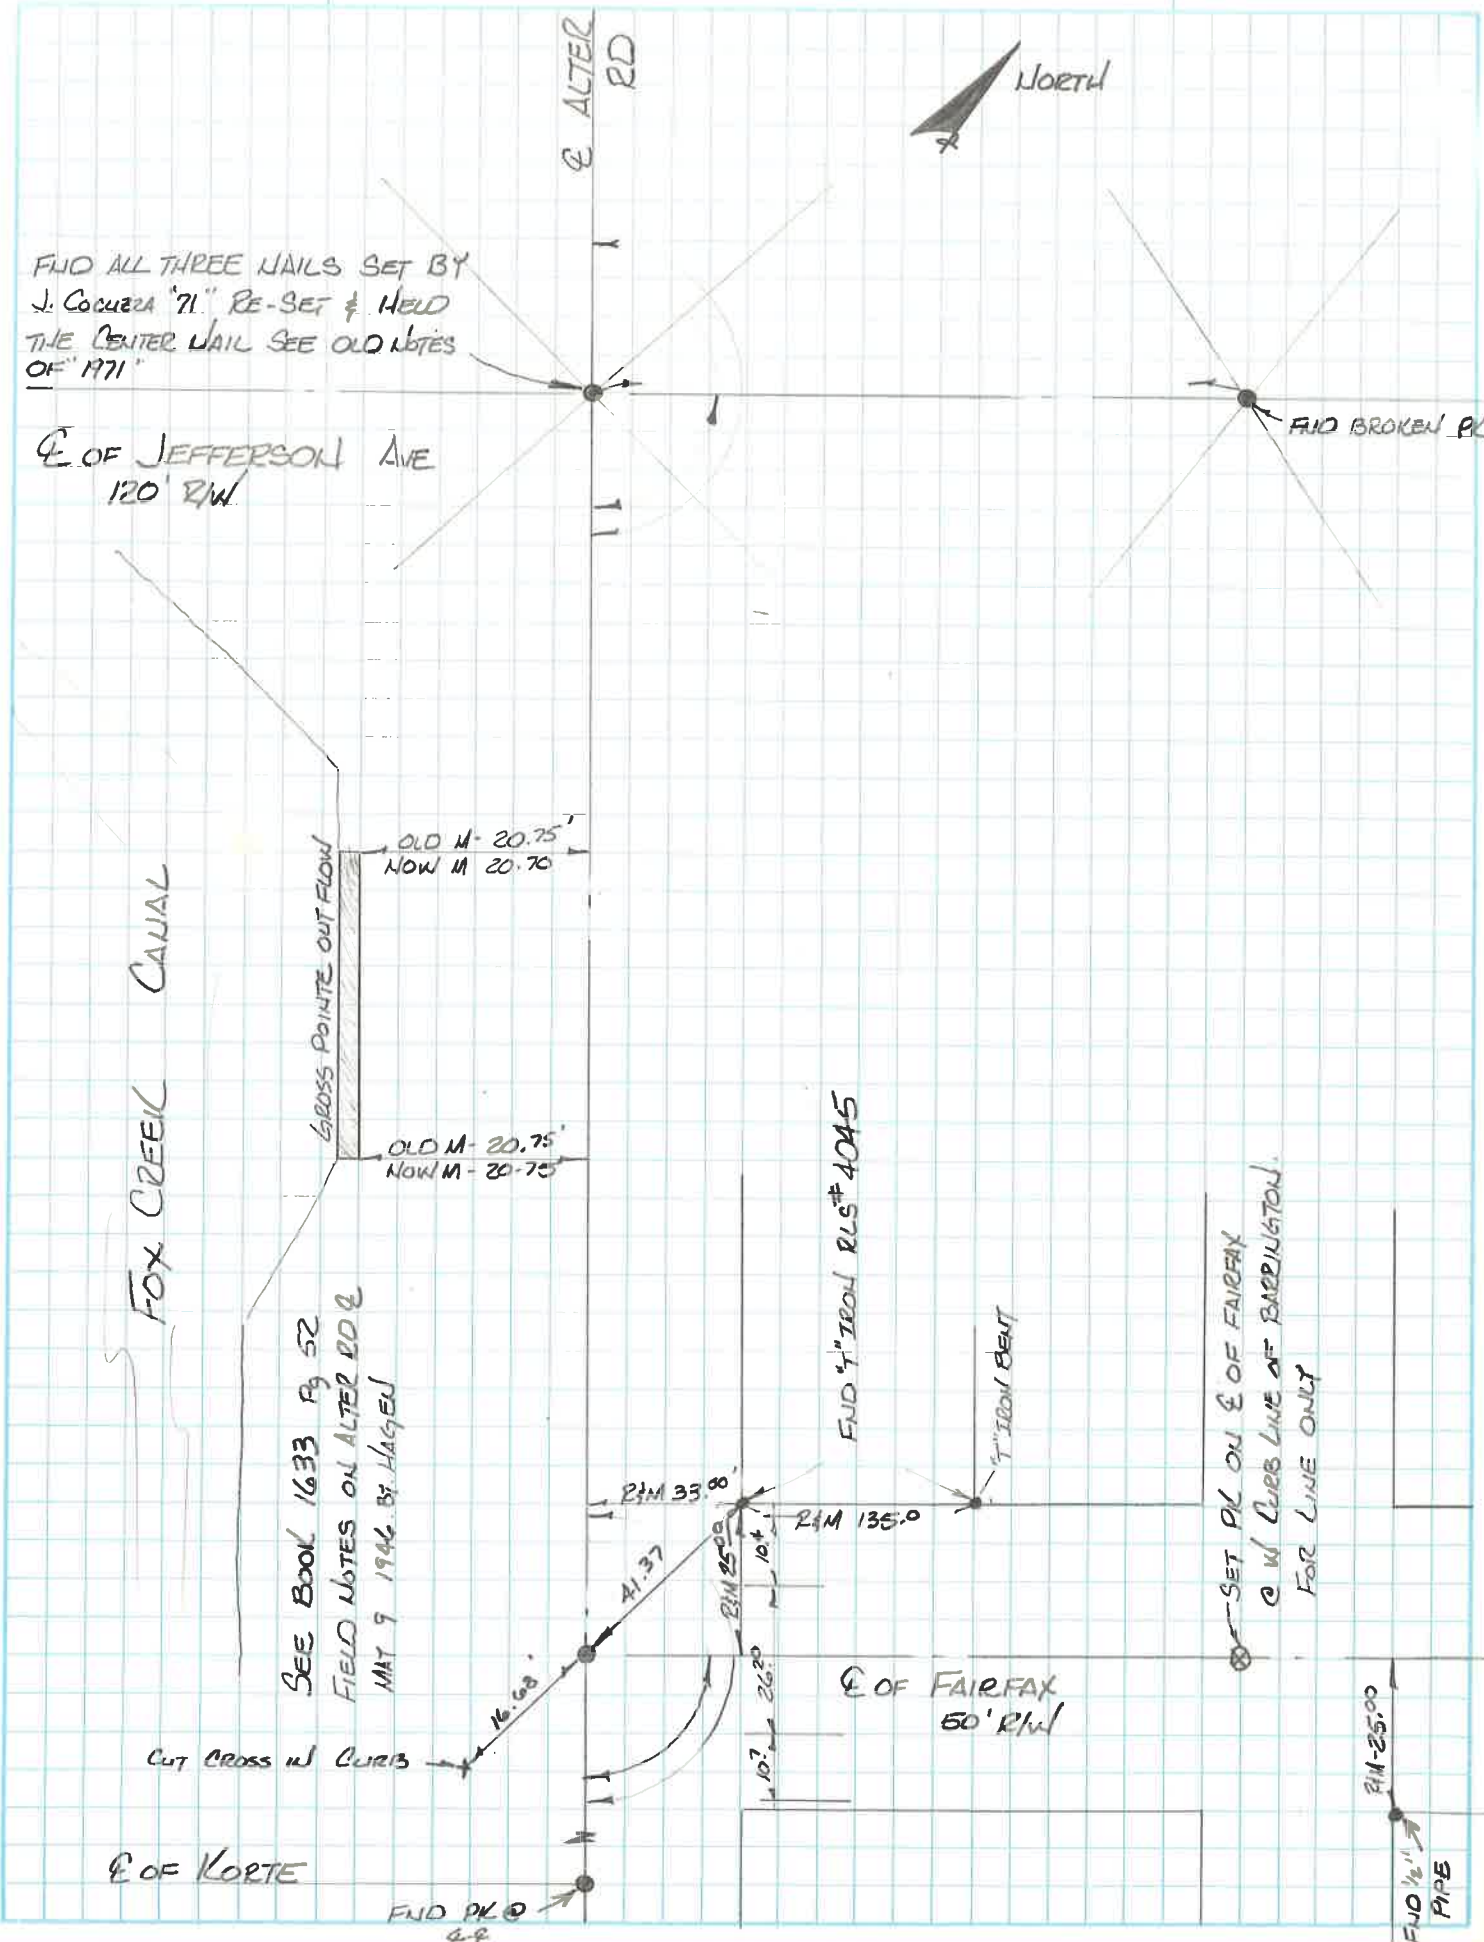 ℄ ALTER
RD
NORTH
FND ALL THREE NAILS SET BY
J. COCUZZA "71" RE-SET & HELD
THE CENTER NAIL SEE OLD NOTES
OF "1971"
℄ OF JEFFERSON AVE
120' R/W
FND BROKEN PK
OLD M- 20.75'
NOW M 20.70
GROSS POINTE OUT FLOW
FOX CREEK CANAL
OLD M- 20.75'
NOW M- 20.75
SEE BOOK 1633 Pg 52
FIELD NOTES ON ALTER RD ℄
MAY 9 1946 BY. HAGEN
FND "T" IRON RLS# 4045
"T" IRON BENT
SET PK ON ℄ OF FAIRFAX
@ W CURB LINE OF BARRINGTON.
FOR LINE ONLY
R&M 33.00'
R&M 135.0
41.37
R&M 25.00
10.4
26.20
10.7
16.68'
CUT CROSS IN CURB
℄ OF FAIRFAX
50' R/W
R&M-25.00
℄ OF KORTE
FND PK @
℄-℄
FND 1/2"
PIPE